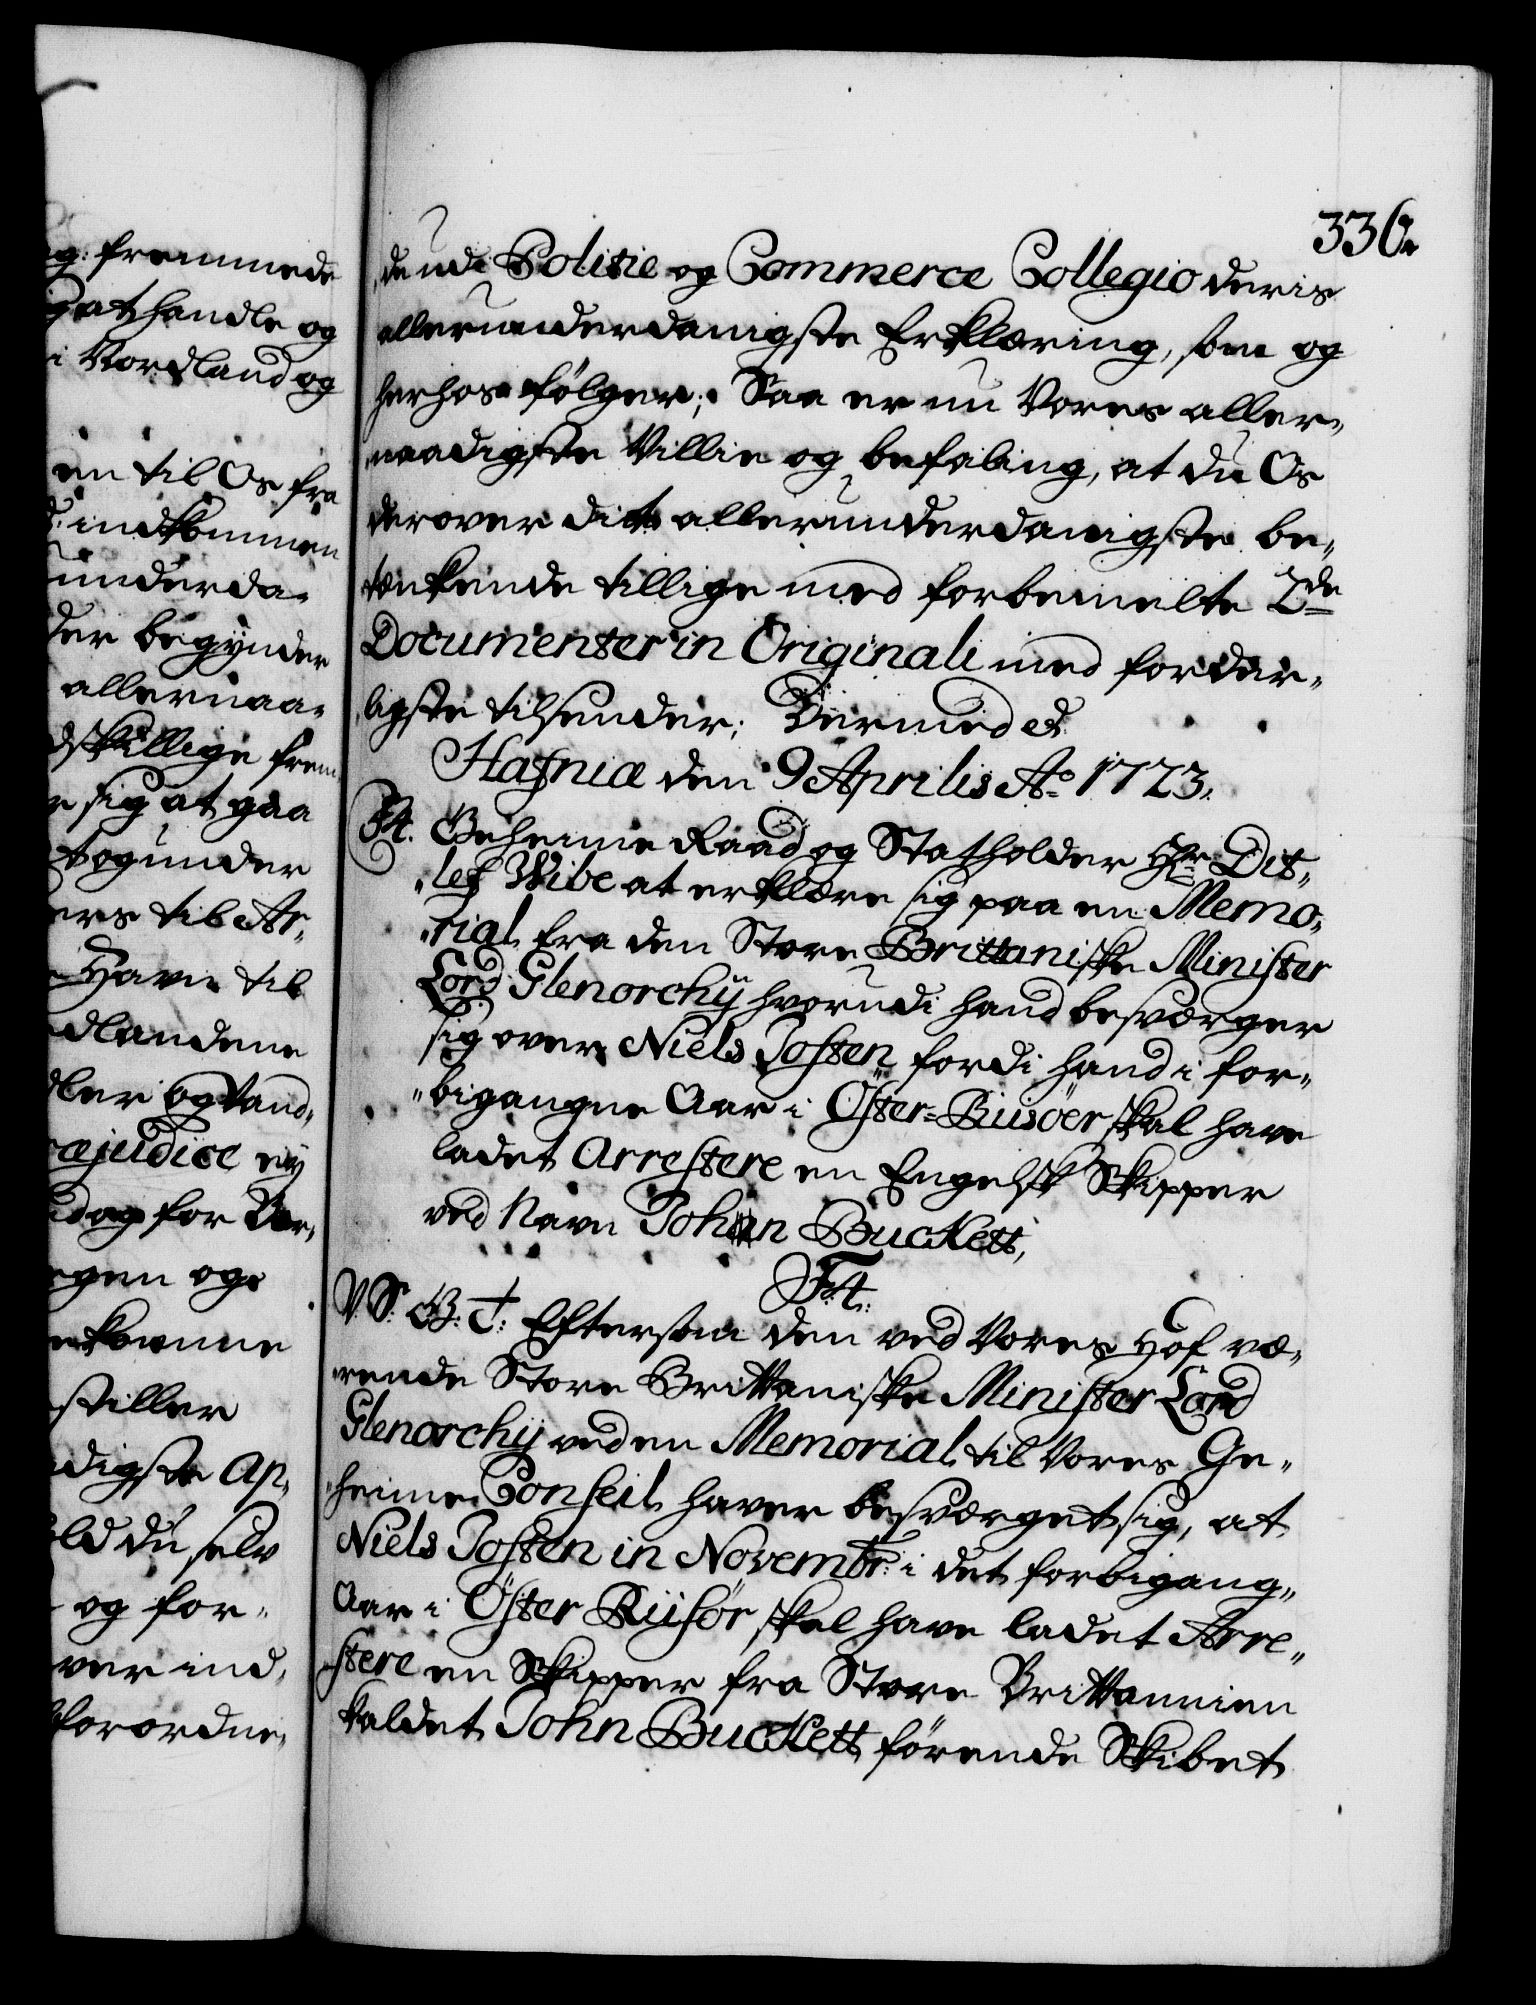 ag: fremmede
g at handle og
i Nordland og
en til Os fra
d: indkommen
underda-
der begynder
allernaa-
dskillige frem
e sig at gaa
togunder
ers til Ar,
Havn til
dlandene
dler og Vand,
ræjudice ey
dag for Vor,
egen og
ekomme
stiller
digste Ap,
ld du selv
og for-
ver ind,
forordne,
336.
de udi Politie og Commerce Collegio deris
allerunderdanigste Erklæring, som og
herhos følger; Saa er nu Vores aller-
naadigste Villie og befaling, at du Os
derover dit allerunderdanigste be-
tænkende tillige med forbemelte 2de
Documenter in Originali med forder-
ligste tilsender; Dermed &
Hafniæ den 9 Aprilis Ao 1723.
F4. Geheime Raad og Statholder Hr Dit-
lef Wibe at erklære sig paa en Memo-
rial fra den Store Brittaniske Minister
Lord Glenorchÿ hvorudi hand besværger
sig over Niels Josten fordi hand i for-
bigangne Aar i Öster-Riisöer skal have
ladet Arrestere en Engelsk Skipper
ved Navn Johan Buckett,
F:4:
V. S. G: T: Eftersom den ved Vores Hof væ-
rende Store Brittaniske Minister Lord
Glenorchÿ ved en Memorial til Vores Ge-
heime Conseil haver besværget sig, at
Niels Josten in Novembr: i det forbigang-
Aar i Öster Riisör skal have ladet Arre-
stere en Skipper fra Store Brittannien
kaldet John Buckett förende Skibet